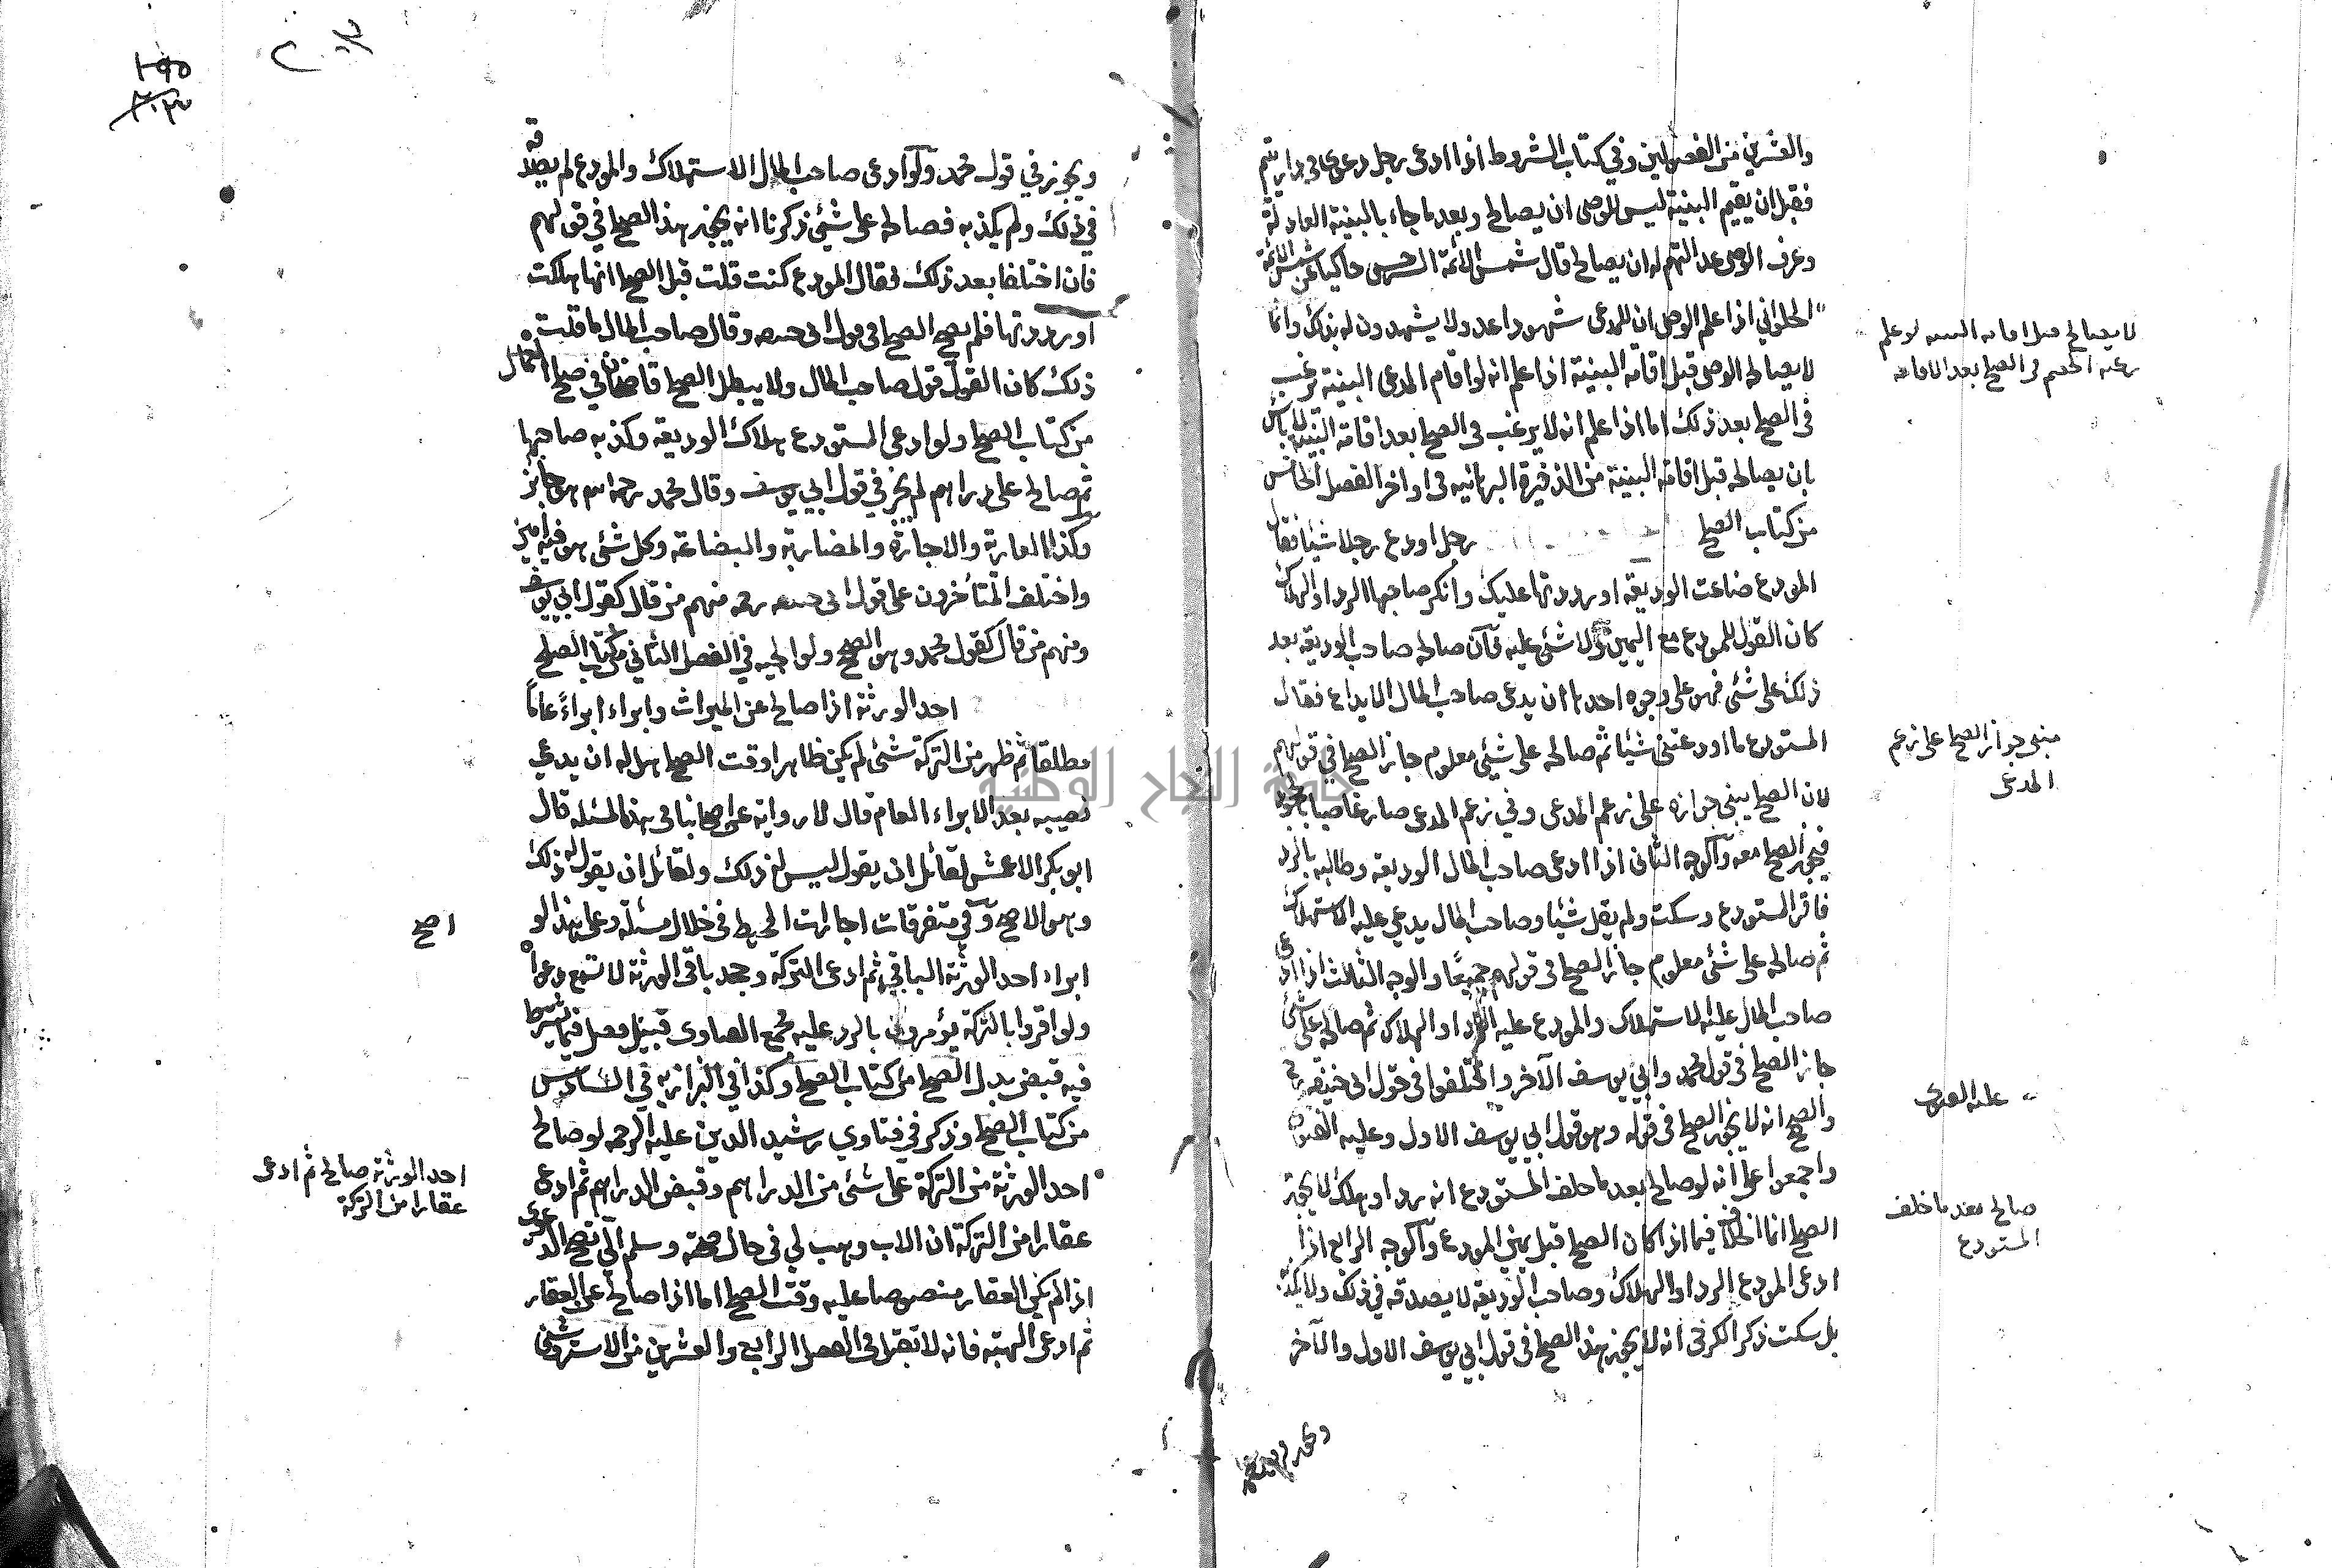 والعشرين من الفصولين وفي كتاب الشروط اذا ادعى رجل دعوى في دار يتيم
فقبل ان يقيم البينة ليس للوصى ان يصالح وبعد ما جاء بالبينة العادلة
وعرف الوصى عدالتهم له ان يصالح قال شمس الائمة السرخسى حاكيا عن شمس الائمة
الحلواني اذا علم الوصى ان للمدعى شهودا عدولا يشهدون له بذلك وانما
لا يصالح الوصى قبل اقامة البينة اذا علم انه لو اقام المدعى البينة يرغب
فى الصلح بعد ذلك اما اذا علم انه لا يرغب فى الصلح بعد اقامة البينة لا باس
بان يصالح قبل اقامة البينة من الذخيرة البرهانيه فى اواخر الفصل الخامس
من كتاب الصلح رجل اودع رجلا شيئا فقال
المودع ضاعت الوديعة او رددتها عليك وانكر صاحبها الرد او الهلاك
كان القول للمودع مع اليمين ولا شئ عليه فان صالح صاحب الوديعة بعد
ذلك على شئ فهو على وجوه احدها ان يدعى صاحب المال الايداع فقال
المستودع ما اودعتنى شيئا ثم صالح على شئ معلوم جاز الصلح في قولهم
لان الصلح يبنى جوازه على زعم المدعى وفي زعم المدعى صار غاصبا بالجحود
فيجوز الصلح معه والوجه الثانى اذا ادعى صاحب المال الوديعة وطالبه بالرد
فاقر المستودع وسكت ولم يقل شيئا وصاحب المال يدعي عليه الاستهلاك
ثم صالح على شئ معلوم جاز الصلح فى قولهم جميعا والوجه الثالث اذا ادعى
صاحب المال عليه الاستهلاك والمودع عليه الرد او الهلاك ثم صالح على شئ
جاز الصلح فى قول محمد وابي يوسف الآخر واختلفوا فى قول ابى حنيفة رح
والصحيح انه لا يجوز الصلح فى قوله وهو قول ابي يوسف الاول وعليه الفتوى
واجمعوا على انه لو صالح بعد ما حلف المستودع انه رد او هلك لا يجوز
الصلح انما الخلاف فيما اذا كان الصلح قبل يمين المودع والوجه الرابع اذا
ادعى المودع الرد او الهلاك وصاحب الوديعة لا يصدقه في ذلك ولا يكذبه
بل سكت ذكر الكرخى انه لا يجوز هذا الصلح فى قول ابي يوسف الاول والآخر
لا يصالح قبل اقامة البينة لو علم
رغبه الخصم فى الصلح بعد الاقامة
مبنى جواز الصلح على زعم
المدعى
عليه الفتوى
صالح بعد ما حلف
المستودع
ويجوز في قول محمد ولو ادعى صاحب المال الاستهلاك والمودع لم يصدقه
في ذلك ولم يكذبه فصالح على شئ ذكرنا انه يجوز هذا الصلح في قولهم
فان اختلفا بعد ذلك فقال المودع كنت قلت قبل الصلح انها هلكت
او رددتها فلم يصح الصلح في قول ابى حنيفه وقال صاحب المال ما قلت
ذلك كان القول قول صاحب المال ولا يبطل الصلح قاضخان في صلح الاعمال
من كتاب الصلح ولو ادعى المستودع هلاك الوديعة وكذبه صاحبها
ثم صالح على دراهم لم يجز في قول ابي يوسف وقال محمد رحمه الله هو جائز
وكذا العارية والاجارة والمضاربة والبضاعة وكل شئ هو فيه امين
واختلف المتأخرون على قول ابى حنيفه رحمه منهم من قال كقول ابي يوسف
ومنهم من قال كقول محمد وهو الصحيح ولوالجيه في الفصل الثاني من كتاب الصلح
احد الورثة اذا صالح عن الميراث وابراء ابراءً عاماً
مطلقا ثم ظهر من التركة شئ لم يكن ظاهرا وقت الصلح هل له ان يدعي
نصيبه بعد الابراء العام قال لا رواية عن اصحابنا فى هذه المسئلة قال
ابو بكر الاعمش لقائل ان يقول ليس له ذلك ولقائل ان يقول له ذلك
وهو الاصح وفي متفرقات اجارات المحيط فى خلال مسئلة وعلى هذا لو
ابراء احد الورثة الباقي ثم ادعى التركة وجحد باقى الورثة لا تسمع دعواه
ولو اقروا بالتركة يؤمرون بالرد عليه مجمع الفتاوى قبيل فصل فيما يشترط
فيه قبض بدل الصلح من كتاب الصلح وكذا في البزازيه في السادس
من كتاب الصلح وذكر في فتاوي رشيد الدين عليه الرحمه لو صالح
احد الورثة من التركة على شئ من الدراهم وقبض الدراهم ثم ادعى
عقارا من التركة ان الاب وهب لي فى حال صحته وسلم الىّ تصح الدعوى
اذا لم يكن العقار منصوصا عليه وقت الصلح اما اذا صالح على العقار
ثم ادعى الهبة فانه لا تقبل فى الفصل الرابع والعشرين من الاستروشنى
اصح
احد الورثة صالح ثم ادعى
عقارا من التركة
جامعة النجاح الوطنية